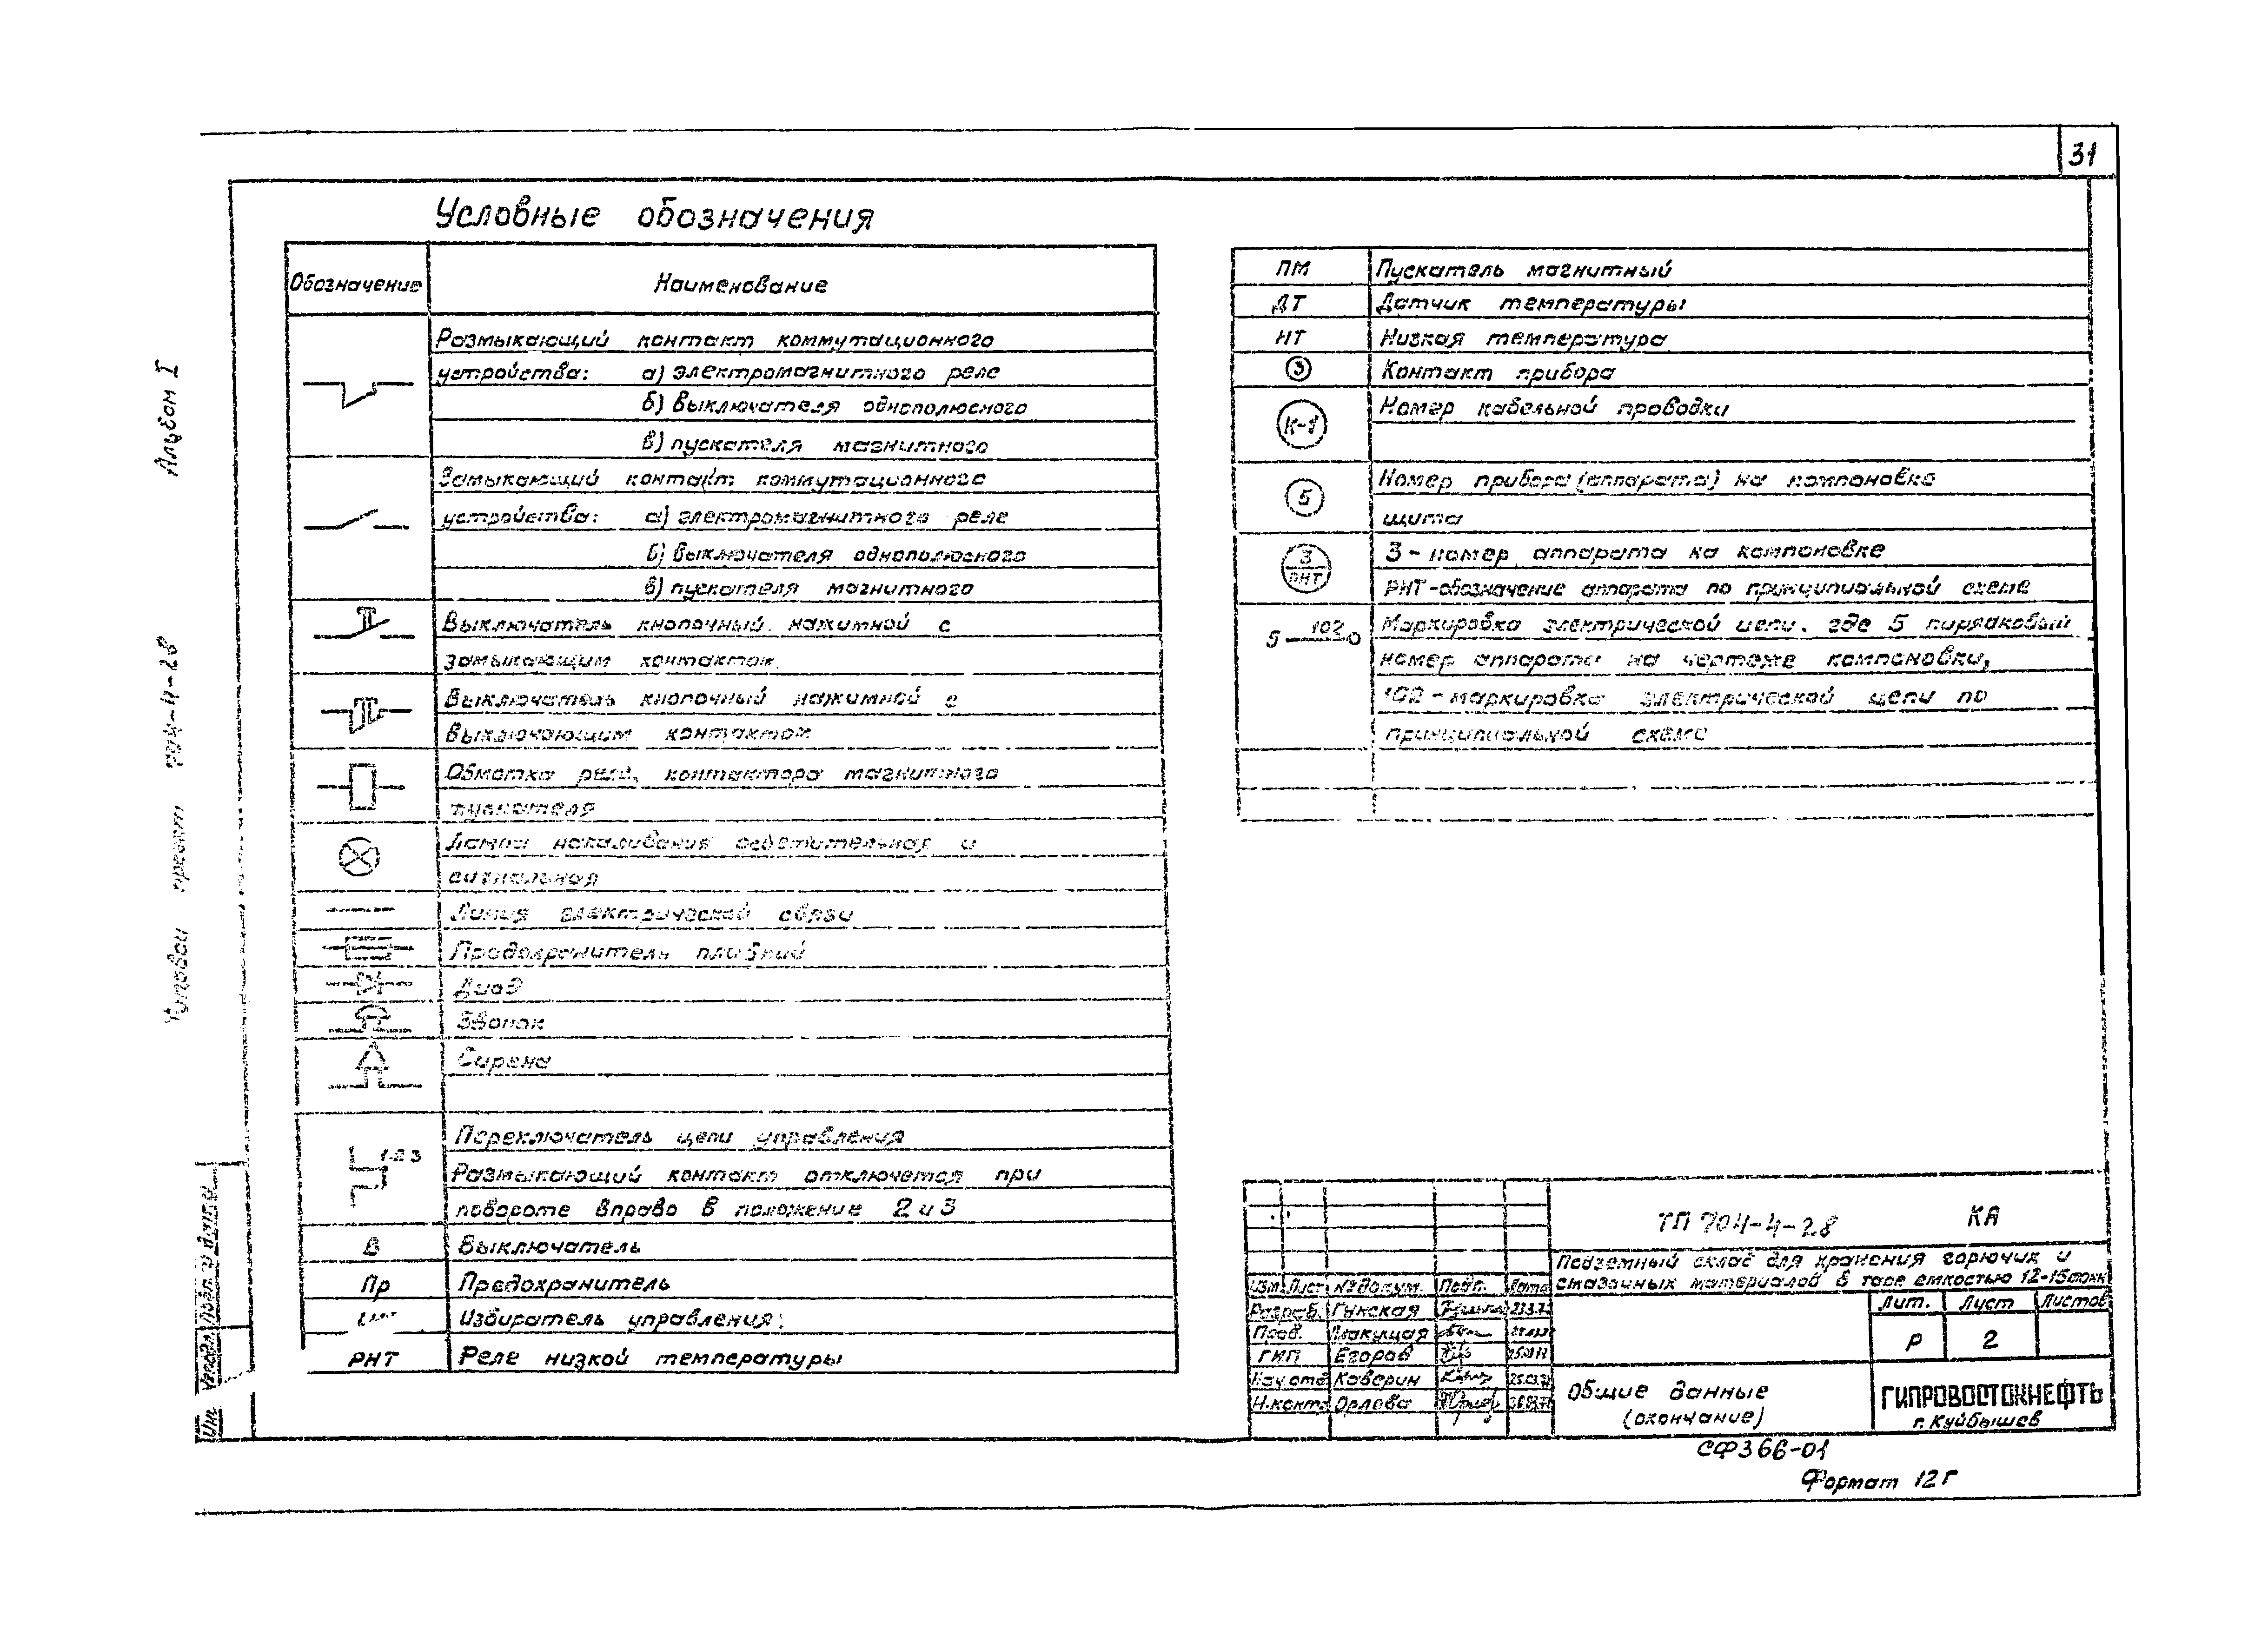 31
Альбом I
Типовой проект 704-4-28
Условные обозначения
Обозначение Наименование
Размыкающий контакт коммутационного
устройства: а) электромагнитного реле
б) выключателя однополюсного
в) пускателя магнитного
Замыкающий контакт коммутационного
устройства: а) электромагнитного реле
б) выключателя однополюсного
в) пускателя магнитного
Выключатель кнопочный нажимной с
замыкающим контактом.
Выключатель кнопочный нажимной с
выключающим контактом
Обмотка реле, контактора магнитного
пускателя
Лампа накаливания осветительная и
сигнальная
Линия электрической связи
Предохранитель плавкий
Диод
Звонок
Сирена
1-2 3
Переключатель цепи управления
Размыкающий контакт отключется при
повороте вправо в положение 2 и 3
В Выключатель
Пр Предохранитель
Избиратель управления
РНТ Реле низкой температуры
ПМ Пускатель магнитный
ДТ Датчик температуры
НТ Низкая температура
3 Контакт прибора
К-1 Номер кабельной проводки
5 Номер прибора (аппарата) на компоновке
щита
3 3 - номер аппарата на компоновке
РНТ РНТ - обозначение аппарата по принципиальной схеме
5 102 Маркировка электрической цепи, где 5 порядковый
номер аппарата на чертеже компоновки,
102 - маркировка электрической цепи по
принципиальной схеме
ТП 704-4-28 КА
Подземный склад для хранения горючих и
смазочных материалов в таре емкостью 12-15 тонн
Изм. Лист № докум. Подп. Дата
Разраб. Гунская
Пров.
ГИП Егоров
Нач. отд. Каверин
Н.контр. Орлова
Лит. Лист Листов
Р 2
Общие данные
(окончание)
ГИПРОВОСТОКНЕФТЬ
г. Куйбышев
СФ366-01
Формат 12Г
Подп. и дата